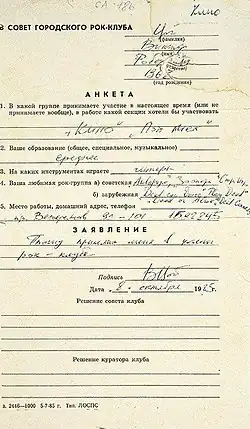 Кино
В СОВЕТ ГОРОДСКОГО РОК-КЛУБА
Цой
(фамилия)
Виктор
Роберт
1962
(год рождения)
АНКЕТА
1. В какой группе принимаете участие в настоящее время (или не
принимаете вообще), в работе какой секции хотели бы участвовать
"Кино"
2. Ваше образование (общее, специальное, музыкальное)
среднее
3. На каких инструментах играете гитара
4. Ваша любимая рок-группа а) советская Аквариум, Зоопарк
б) зарубежная
5. Место работы, домашний адрес, телефон
пр. Ветеранов 99-101
ЗАЯВЛЕНИЕ
Прошу принять меня в члены
рок-клуба
Подпись В Цой
Дата 8 октября 1985 г.
Решение совета клуба
Решение куратора клуба
з. 2446—1000 5-7-85 г. Тип. ЛОСПС